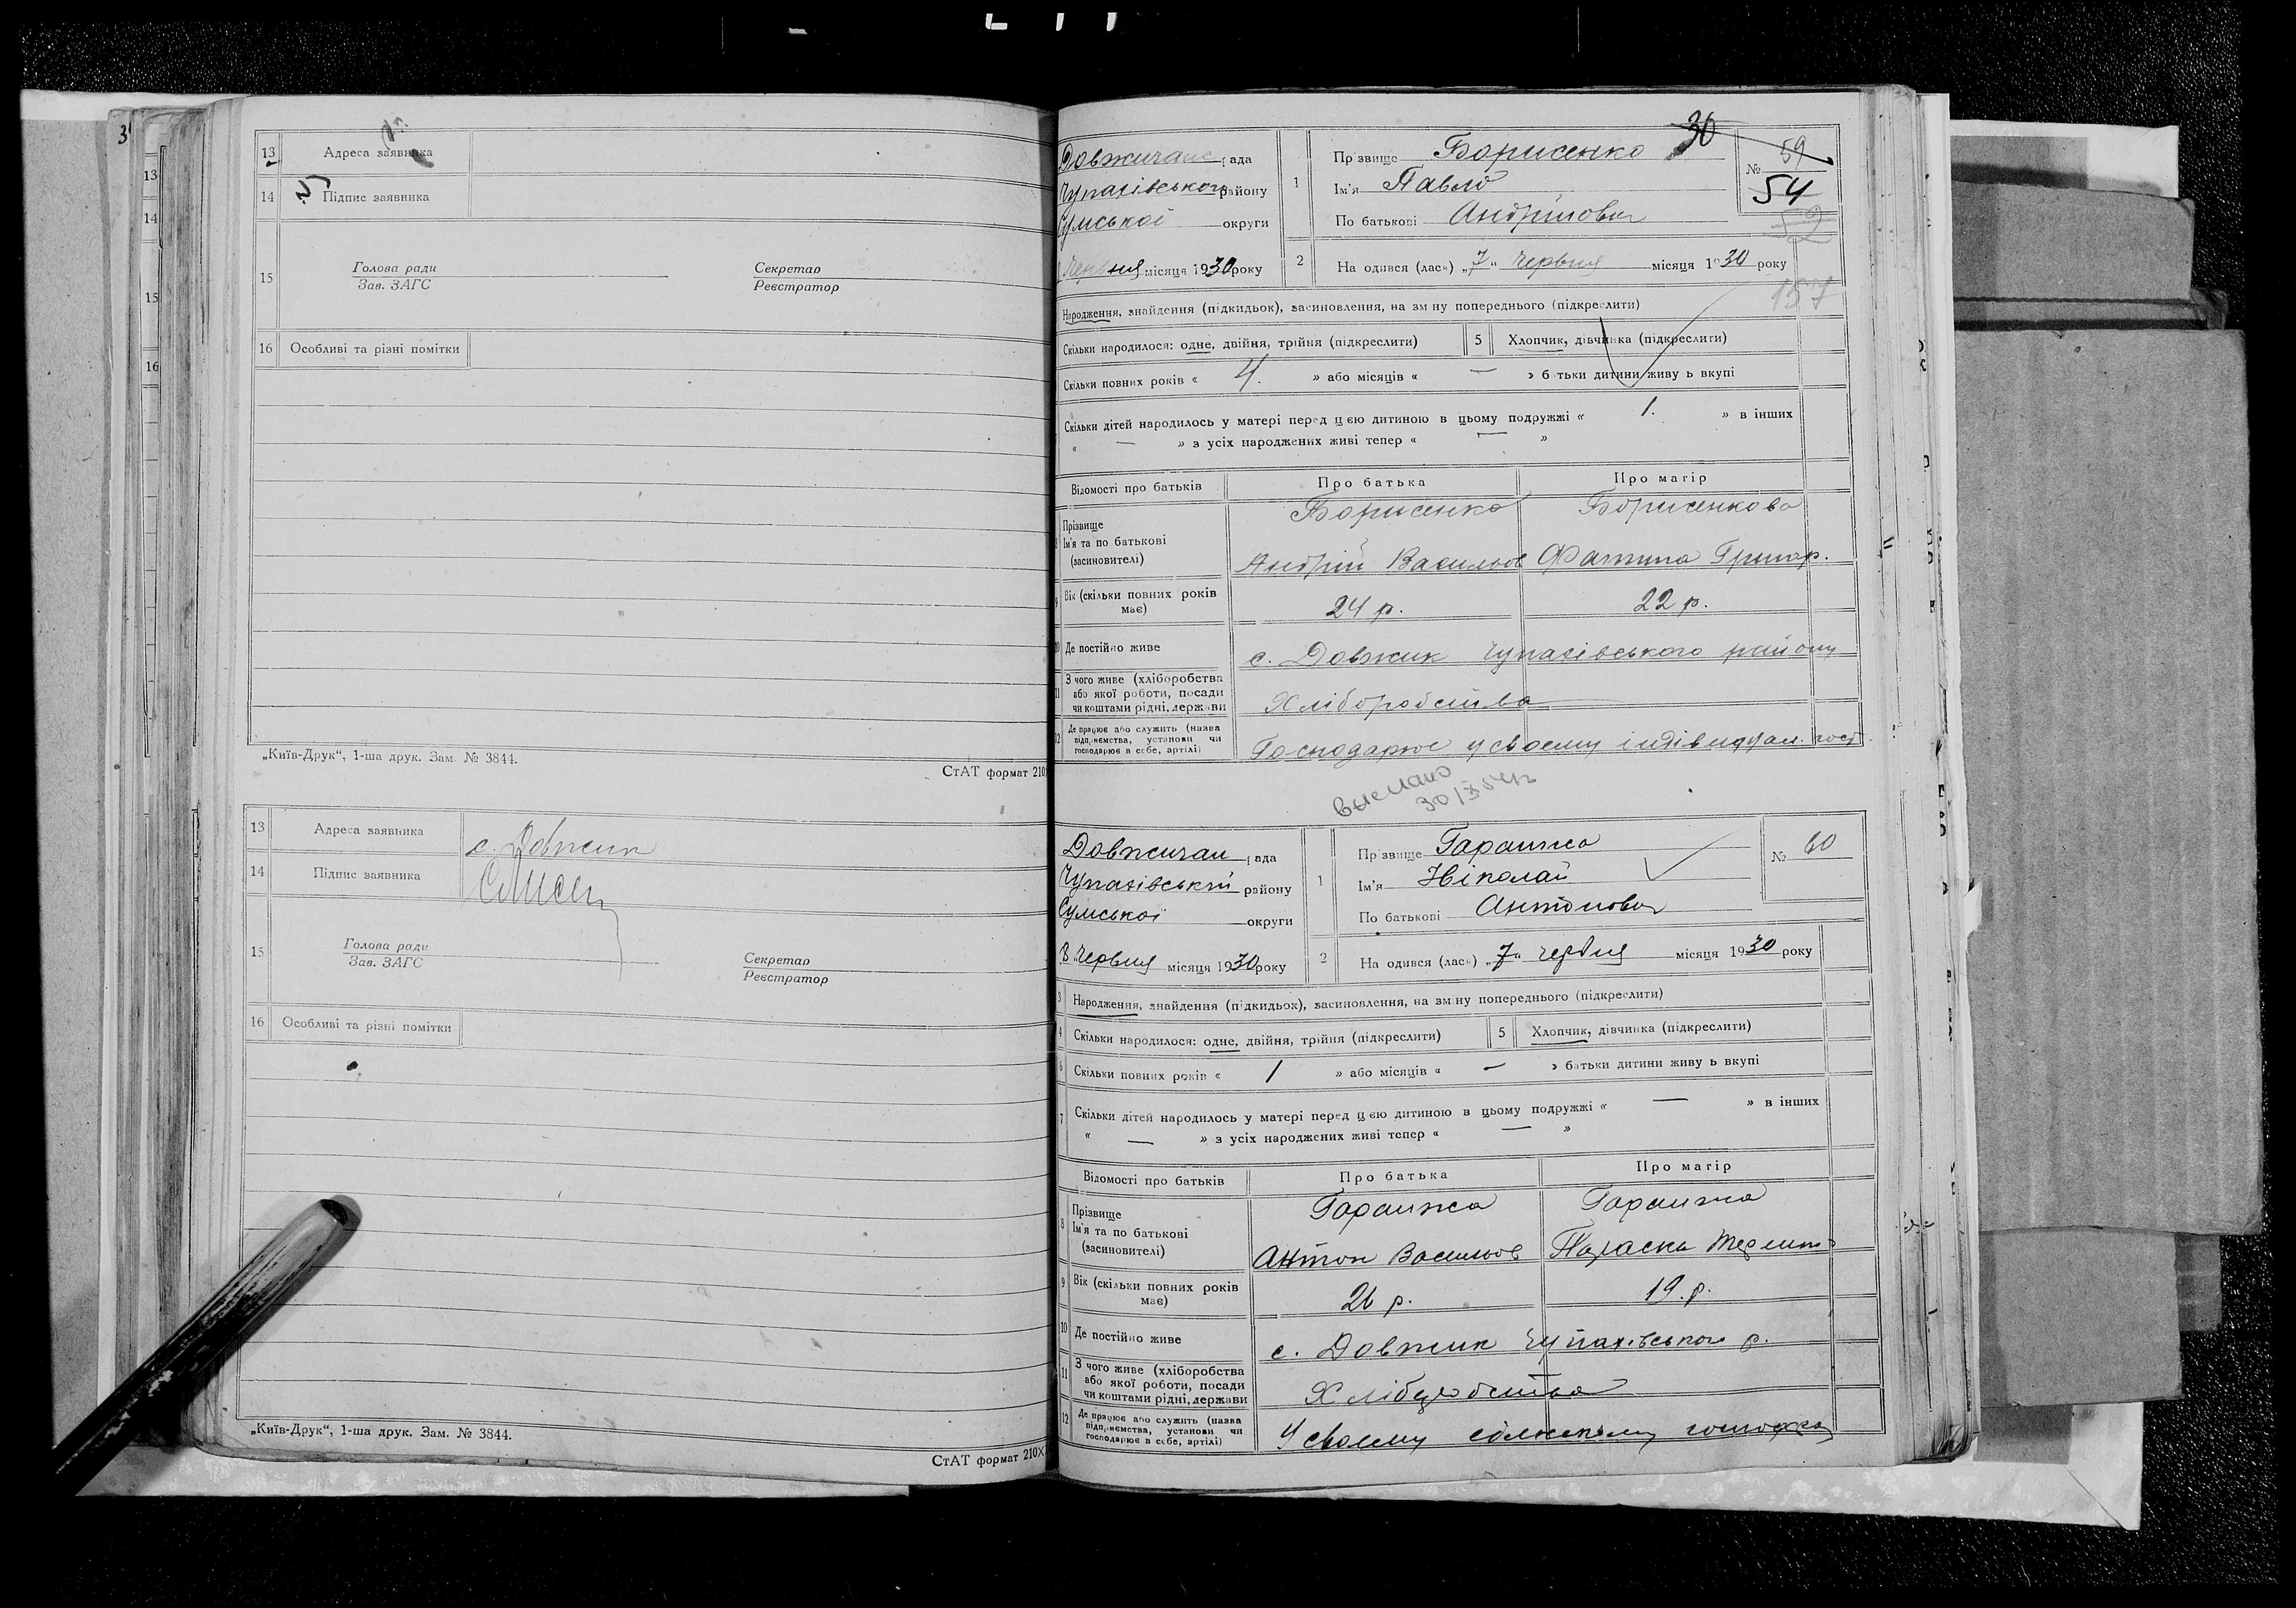 13 Адреса заявника
14 Підпис заявника
15 Голова ради
Зав. ЗАГС
Секретар
Реєстратор
16 Особливі та різні помітки
„Київ-Друк“, 1-ша друк. Зам. № 3844.
СтАТ формат 210
13 Адреса заявника с. Довжик
14 Підпис заявника
15 Голова ради
Зав. ЗАГС
Секретар
Реєстратор
16 Особливі та різні помітки
„Київ-Друк“, 1-ша друк. Зам. № 3844.
СтАТ формат 210Х
30
Довжичан рада
Чупахівського району
Сумської округи
Червня місяця 1930 року
1 Прізвище Борисенко
Ім'я Павло
По батькові Андрійович
№ 59
54
52
2 Народився (лась) „7“ Червня місяця 1930 року
157
Народження, знайдення (підкидьок), засиновлення, на зміну попереднього (підкреслити)
Скільки народилося: одне, двійня, трійня (підкреслити) 5 Хлопчик, дівчинка (підкреслити)
Скільки повних років « 4. » або місяців « — » батьки дитини живуть вкупі
Скільки дітей народилось у матері перед цією дитиною в цьому подружжі « 1. » в інших
« — » з усіх народжених живі тепер « — »
Відомості про батьків Про батька Про матір
Прізвище Борисенко Борисенкова
Ім'я та по батькові
(засиновителі) Андрій Васильов Фатина Григор.
9 Вік (скільки повних років має) 24 р. 22 р.
10 Де постійно живе с. Довжик Чупахівського району
11 З чого живе (хліборобства або якої роботи, посади чи коштами рідні, держави Хліборобства
12 Де працює або служить (назва підприємства, установи чи господарює в себе, артілі) Господарює у своєму індівидуал. госп.
выслано
30/
Довжичан рада
Чупахівський району
Сумської округи
8 Червня місяця 1930 року
1 Прізвище Гаранжа
Ім'я Ніколай
По батькові Антонович
№ 60
2 Народився (лась) „7“ Червня місяця 1930 року
3 Народження, знайдення (підкидьох), засиновлення, на зміну попереднього (підкреслити)
4 Скільки народилося: одне, двійня, трійня (підкреслити) 5 Хлопчик, дівчинка (підкреслити)
6 Скільки повних років « 1 » або місяців « — » батьки дитини живуть вкупі
7 Скільки дітей народилось у матері перед цією дитиною в цьому подружжі « — » в інших
« — » з усіх народжених живі тепер « — »
Відомості про батьків Про батька Про матір
8 Прізвище Гаранжа Гаранжа
Ім'я та по батькові
(засиновителі) Антон Васильов Параска
9 Вік (скільки повних років має) 26 р. 19 р.
10 Де постійно живе с. Довжик Чупахівського р.
11 З чого живе (хліборобства або якої роботи, посади чи коштами рідні, держави Хліборобства
12 Де працює або служить (назва підприємства, установи чи господарює в себе, артілі) У своєму